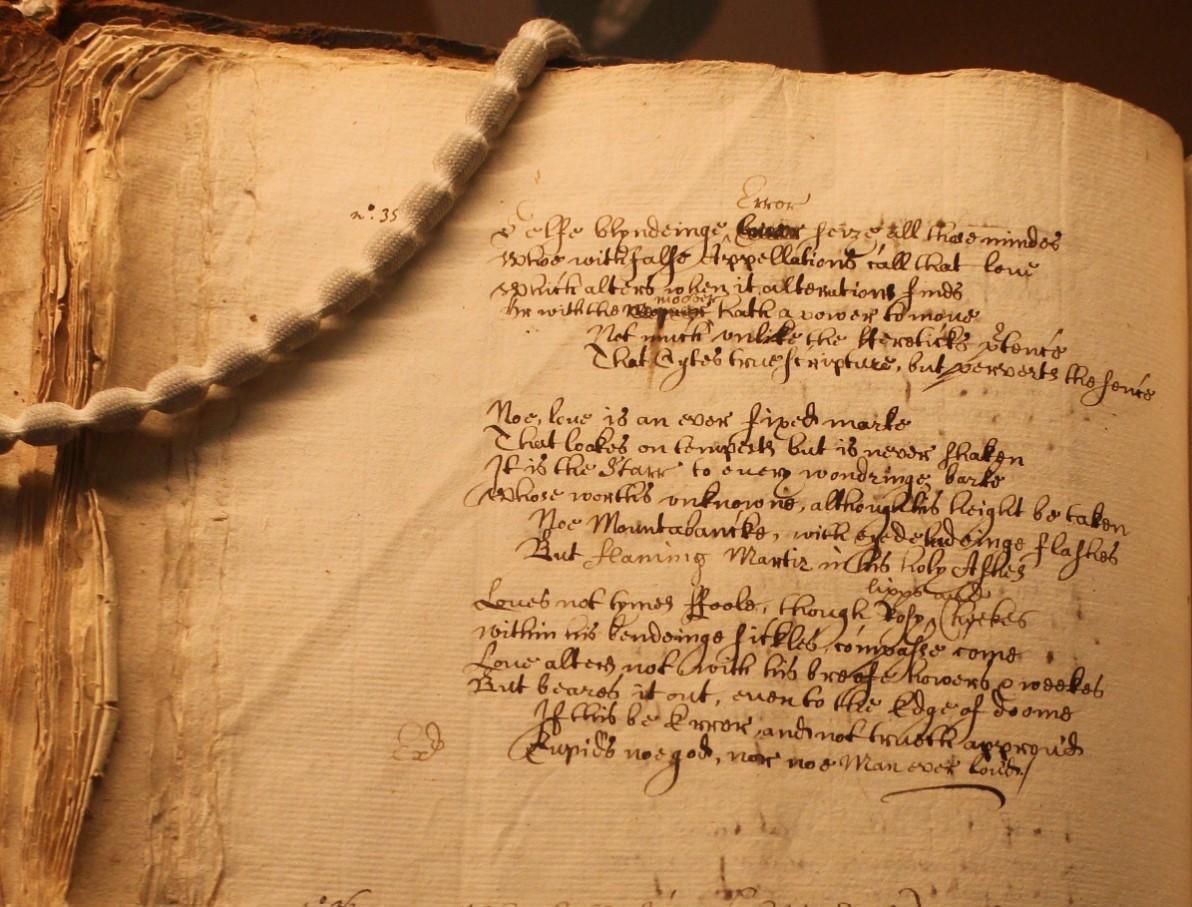 Error
n°. 35
Selfe blyndeinge seize all those mindes
Whoe with false Appellations call that loue
Which alters when it alterations finds
moover
Or with the hath a power to moue
Not much unlike the Hereticks ptence
That Cytes true scripture, but perverts the sence
Noe, loue is an ever fixed marke
That lookes on tempests but is never shaken
It is the Starr to euery wondringe barke
Whose worth's unknowne, although his height be taken
Noe Mountabancke, with eyedeludeinge flashes
But flaming Martir in his holy Ashes
lipps and
Loues not tymes ffoole, though Rosy Cheekes
within his bendeinge sickles compasse come
Loue alters not with his breife howers & weekes
But beares it out, euen to the Edge of doome
If this be Error and not trueth approu'd
Cupids noe god, nor noe Man ever lou'd